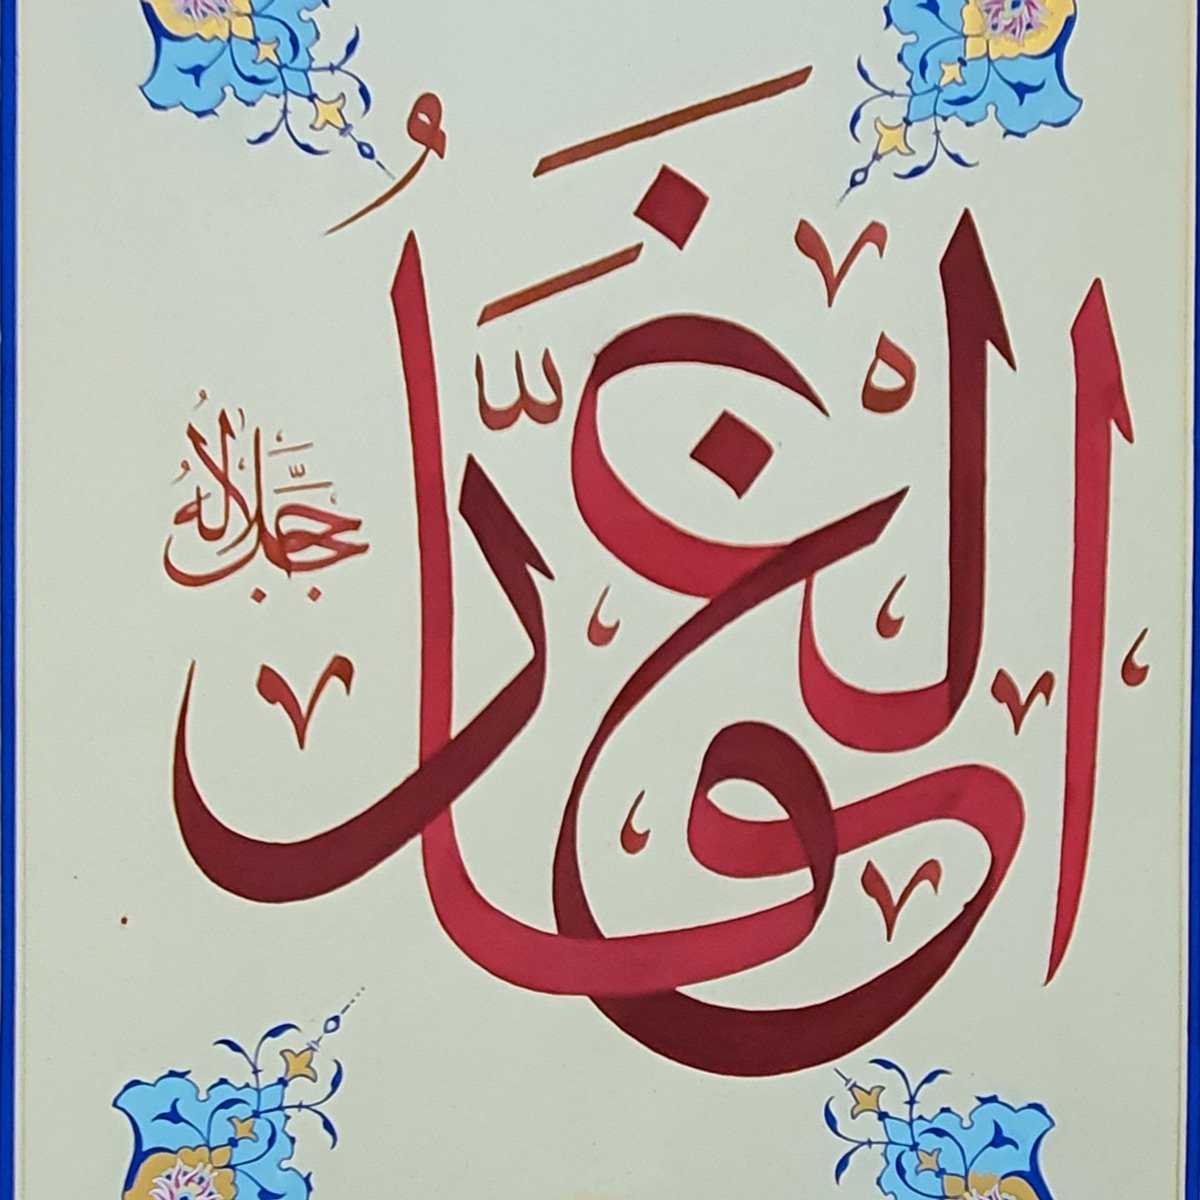 الْغَفَّارُ
جَلَّ جَلَالُهُ